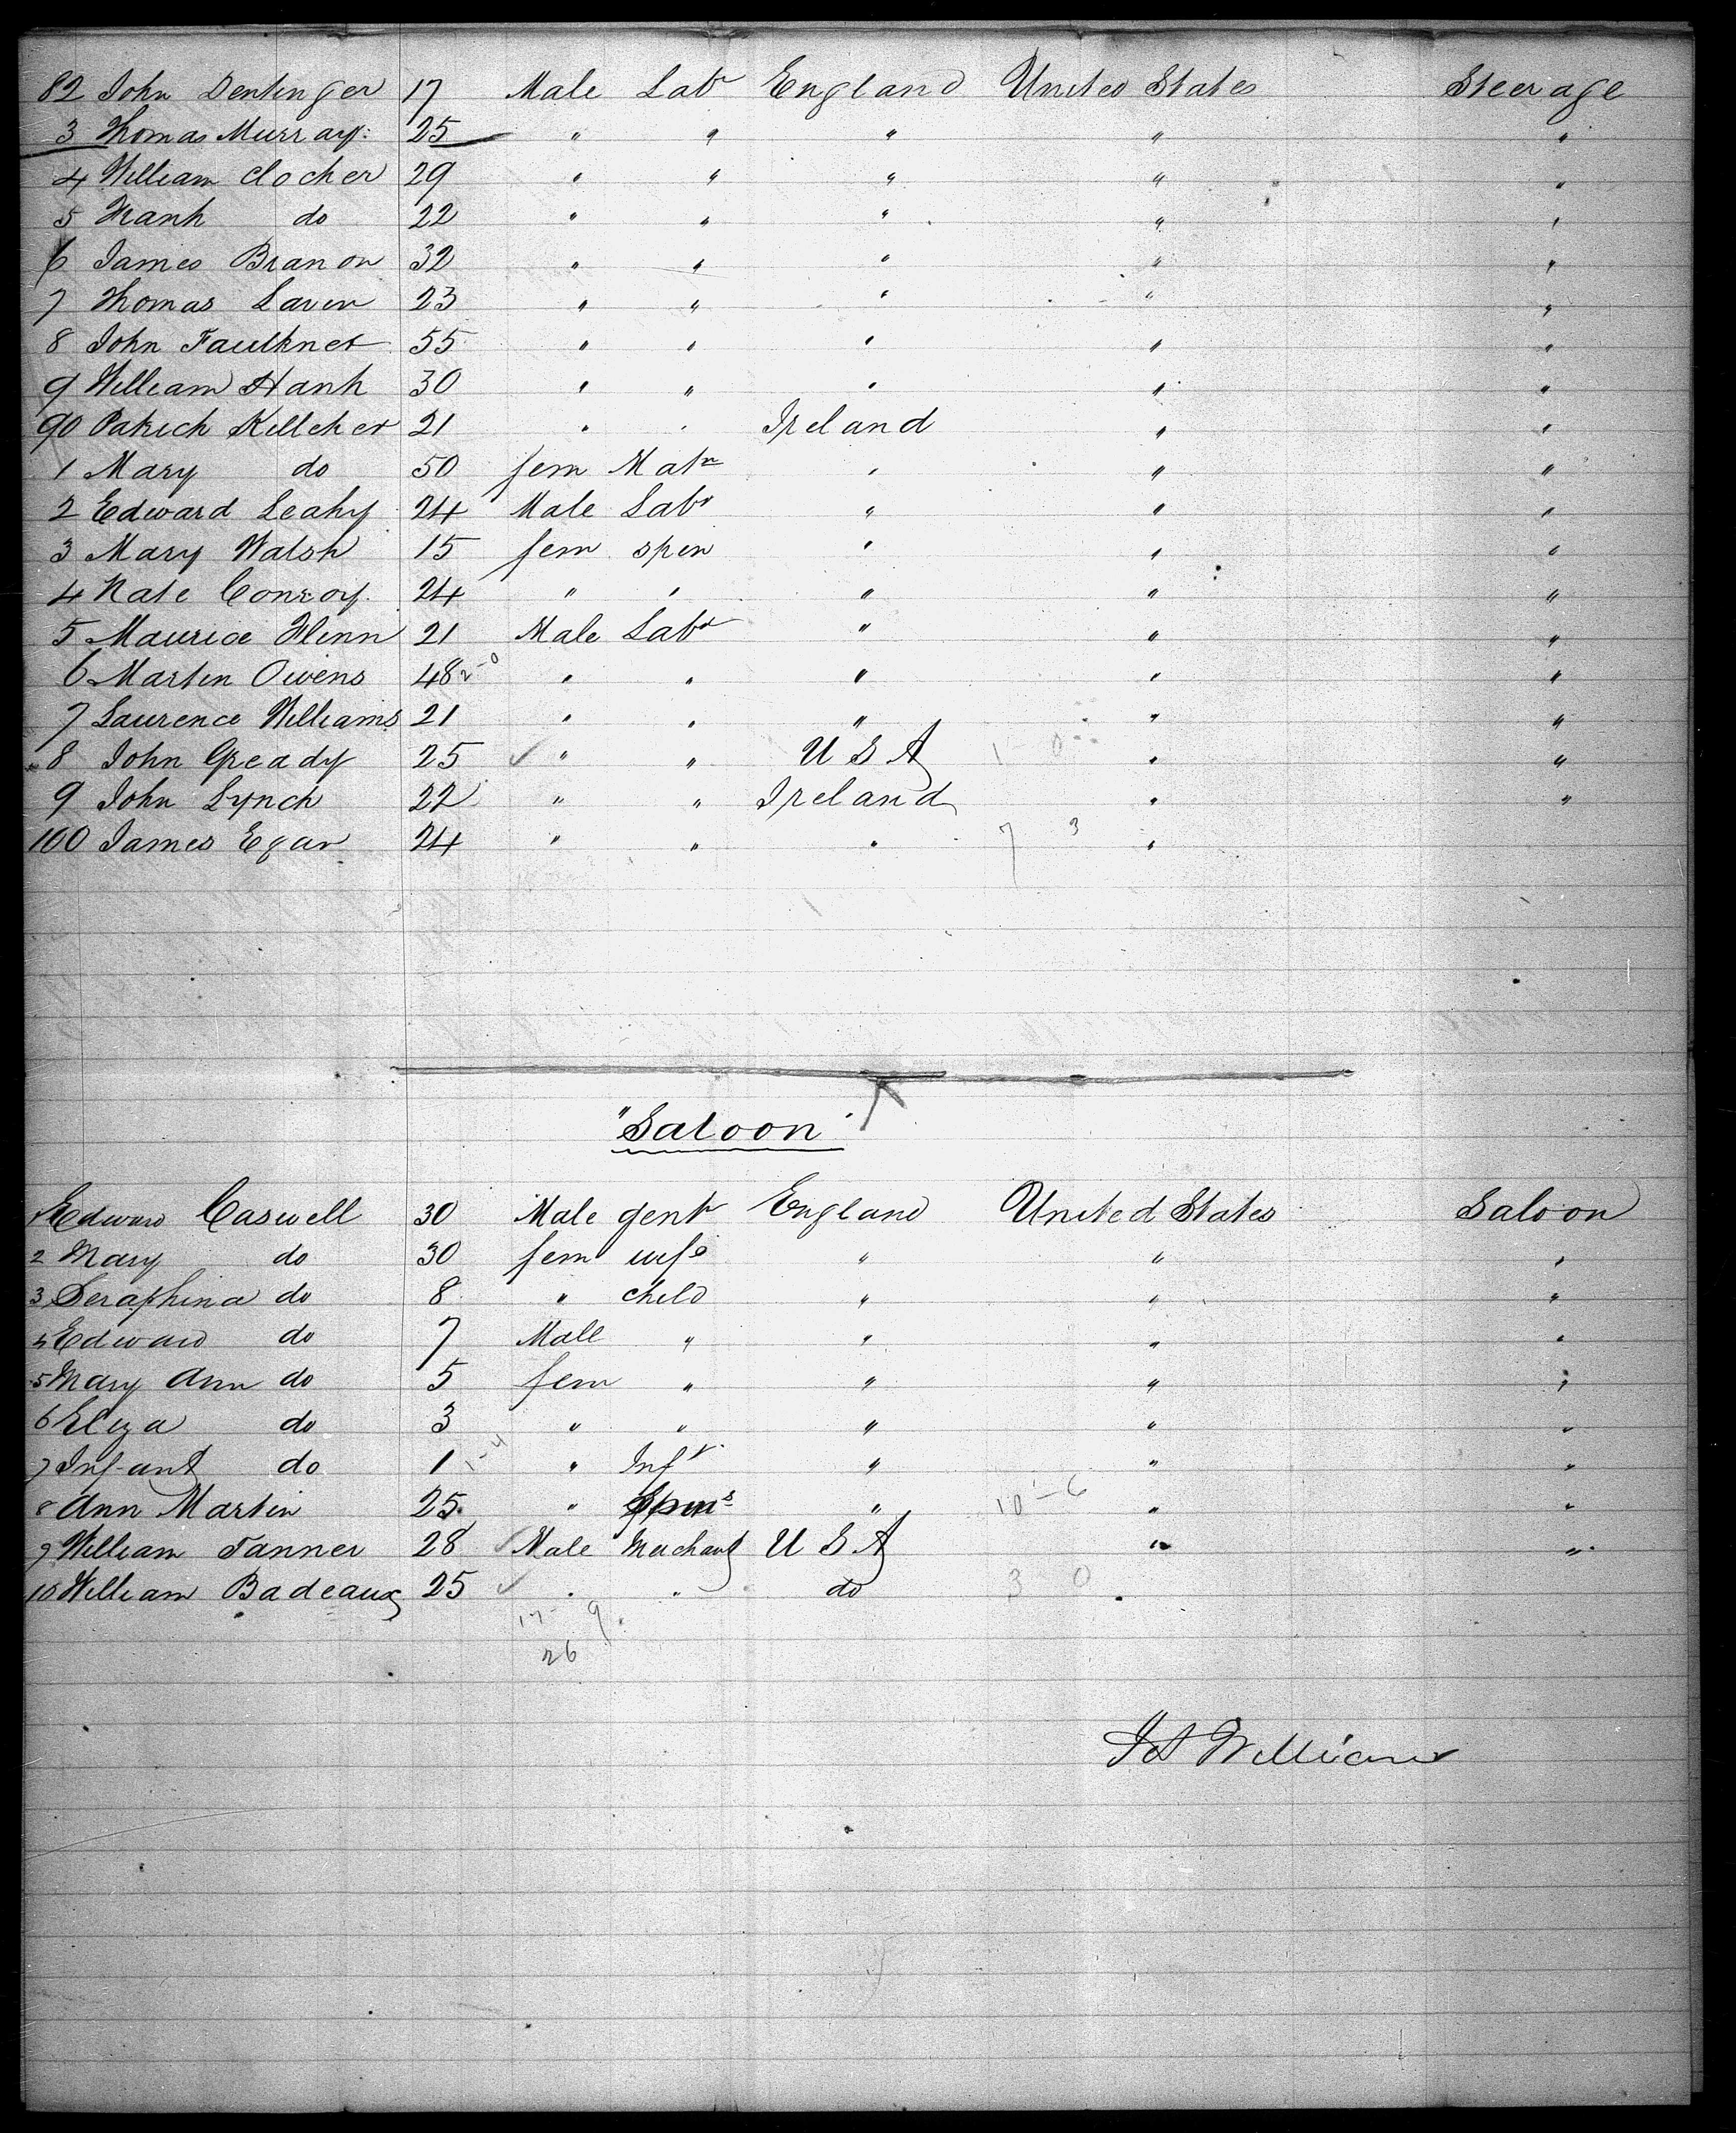 82 John Dentinger 17 Male Labr England United States Steerage
3 Thomas Murray 25 " " " " "
4 William Clocher 29 " " " " "
5 Frank do 22 " " " " "
6 James Branon 32 " " " " "
7 Thomas Laven 23 " " " " "
8 John Faulkner 55 " " " " "
9 William Hank 30 " " " " "
90 Patrick Kelleher 21 " " Ireland " "
1 Mary do 50 fem Matn " " "
2 Edward Leahy 24 Male Labr " " "
3 Mary Walsh 15 fem spin " " "
4 Kate Conroy 24 " " " " "
5 Maurice Flinn 21 Male Labr " " "
6 Martin Owens 48 2-0 " " " " "
7 Laurence Williams 21 " " " " "
8 John Gready 25 ✓ " " U S A 1 - 0 " "
9 John Lynch 22 " " Ireland " "
100 James Egan 24 " " " 7 3 " "
"Saloon"
1 Edward Caswell 30 Male gent England United States Saloon
2 Mary do 30 fem wife " " "
3 Seraphina do 8 " child " " "
4 Edward do 7 Male " " " "
5 Mary Ann do 5 fem " " " "
6 Eliza do 3 " " " " "
7 Infant do 1 1-4 " Inft " " "
8 Ann Martin 25 " Spins " 10-6 " "
9 William Tanner 28 ✓ Male Merchant U S A " "
10 William Badeaux 25 ✓ " " do 3 0 "
17- 9
26
Williams